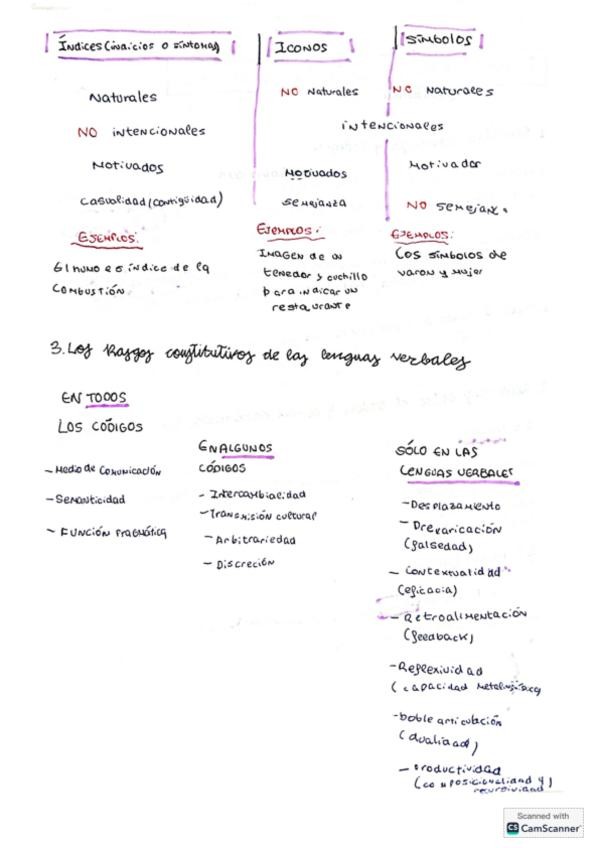 Índices (indicios o síntomas)
Naturales
NO intencionales
Motivados
Casualidad (contigüidad)
EJEMPLOS:
El humo es índice de la
combustión
ICONOS
NO Naturales
intencionales
Motivados
semejanza
EJEMPLOS:
IMAGEN de un
tenedor y cuchillo
para indicar un
restaurante
SÍMBOLOS
NO Naturales
Motivador
NO semejanz.
EJEMPLOS:
Los símbolos de
varon y mujer
3. Los Rasgos constitutivos de las lenguas verbales
EN TODOS
LOS CÓDIGOS
- Medio de comunicación
- Semanticidad
- FUNCIÓN Pragmática
EN ALGUNOS
CÓDIGOS
- Intercambiabilidad
- Transmisión cultural
- Arbitrariedad
- Discreción
SÓLO EN LAS
LENGUAS VERBALES
- Desplazamiento
- Prevaricación
(falsedad)
- Contextualidad
(eficacia)
- Retroalimentación
(feedback)
- Reflexividad
(capacidad metalingüística)
- Doble articulación
(dualidad)
- Productividad
(composicionalidad y)
recursividad
Scanned with
CS CamScanner